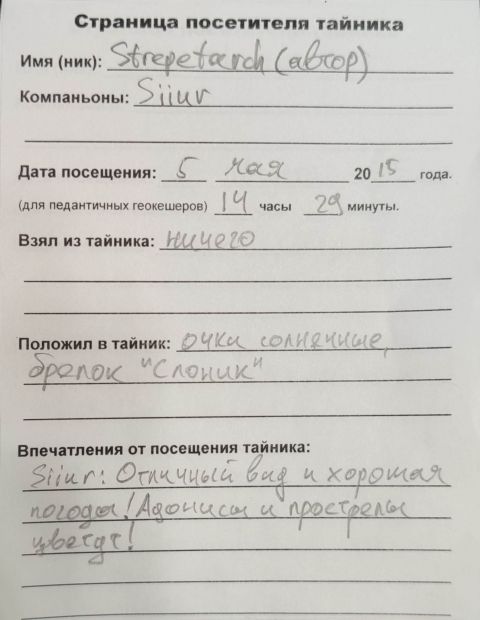 Страница посетителя тайника
Имя (ник): Strepetarch (автор)
Компаньоны: Siiur
Дата посещения: 5 мая 2015 года.
(для педантичных геокешеров) 14 часы 29 минуты.
Взял из тайника: ничего
Положил в тайник: очки солнечные,
брелок "Слоник"
Впечатления от посещения тайника:
Siiur: Отличный вид и хорошая
погода! Адонисы и прострелы
цветут!